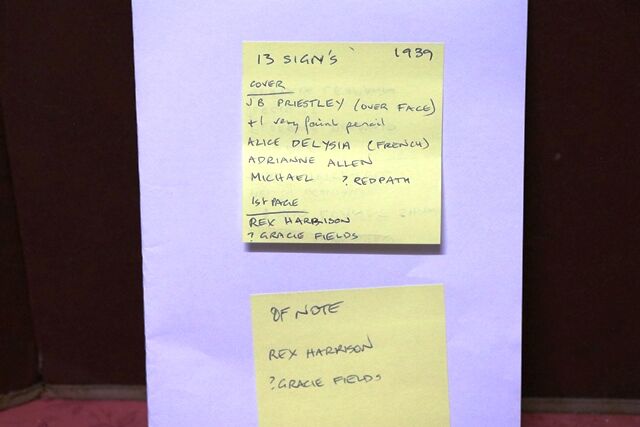 13 SIGN'S 1939
COVER
JB PRIESTLEY (OVER FACE)
+1 very faint pencil
ALICE DELYSIA (FRENCH)
ADRIANNE ALLEN
MICHAEL ? REDPATH
1st PAGE
REX HARRISON
? GRACIE FIELDS
OF NOTE
REX HARRISON
? GRACIE FIELDS